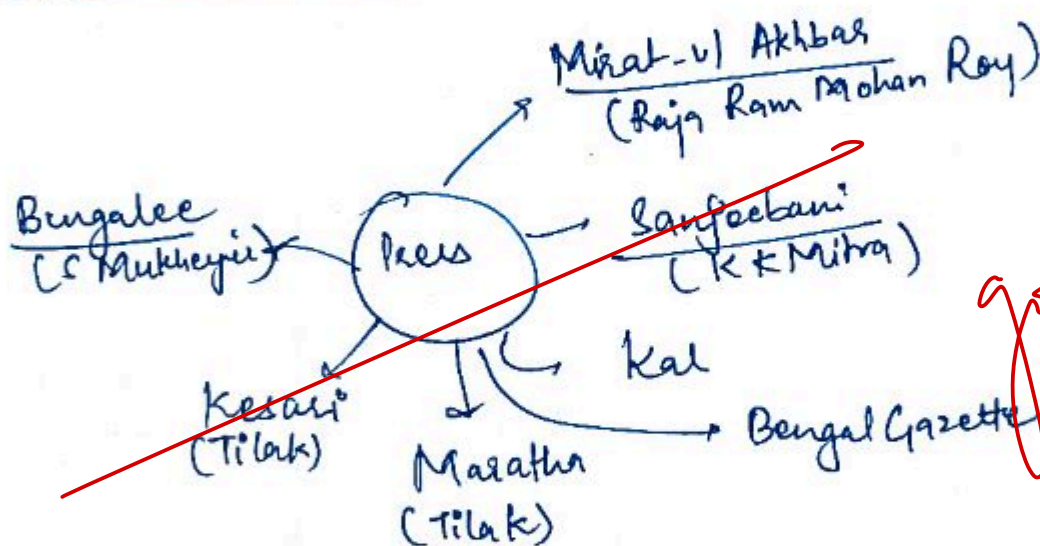 Mirat-ul Akhbar
(Raja Ram Mohan Roy)
Bengalee
(S Mukherjii)
Press
Sanjeebani
(K K Mitra)
Kal
Kesari
(Tilak)
Maratha
(Tilak)
Bengal Gazette